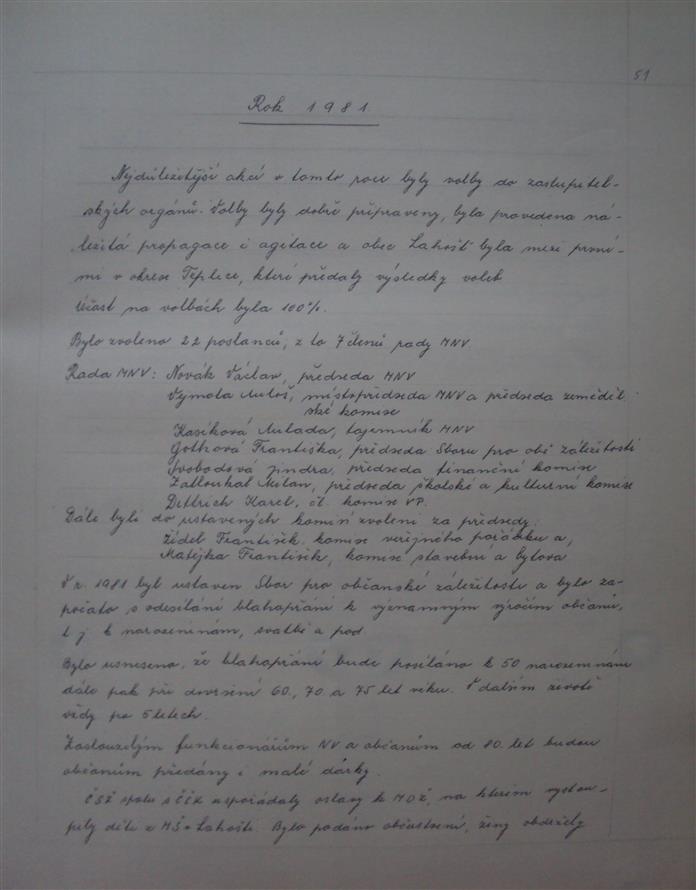 51
Rok 1981
Nejdůležitější akcí v tomto roce byly volby do zastupitel-
ských orgánů. Volby byly dobře připraveny, byla provedena ná-
ležitá propagace i agitace a obec Lahošť byla mezi první-
mi v okrese Teplice, které předaly výsledky voleb
Účast na volbách byla 100%.
Bylo zvoleno 22 poslanců, z to 7 členů rady MNV
Rada MNV: Novák Václav, předseda MNV
Vymola Miloš, místopředseda MNV a předseda zeměděl-
ské komise
Kasíková Milada, tajemník MNV
Gothová Františka, předseda Sboru pro obč záležitosti
Svobodová Jindra, předseda finanční komise
Zatloukal Milan, předseda školské a kulturní komise
Dittrich Karel, čl. komise VP.
Dále byli do ustavených komisí zvoleni za předsedy:
Židel František, komise veřejného pořádku a,
Matějka František, komise stavební a bytová
V r. 1981 byl ustaven Sbor pro občanské záležitosti a bylo za-
počato s odesíláním blahopřání k významným výročím občanů,
t j k narozeninám, svatbě a pod
Bylo usneseno, že blahopřání bude posíláno k 50 narozeninám
dále pak při dovršení 60, 70 a 75 let věku. V dalším životě
vždy po 5 letech.
Zasloužilým funkcionářům NV a občanům od 80 let budou
občanům předány i malé dárky.
ČSŽ spolu s ČČK uspořádaly oslavy k MDŽ, na kterém vystou-
pily děti z MŠ v Lahošti. Bylo podáno občerstvení, ženy obdržely